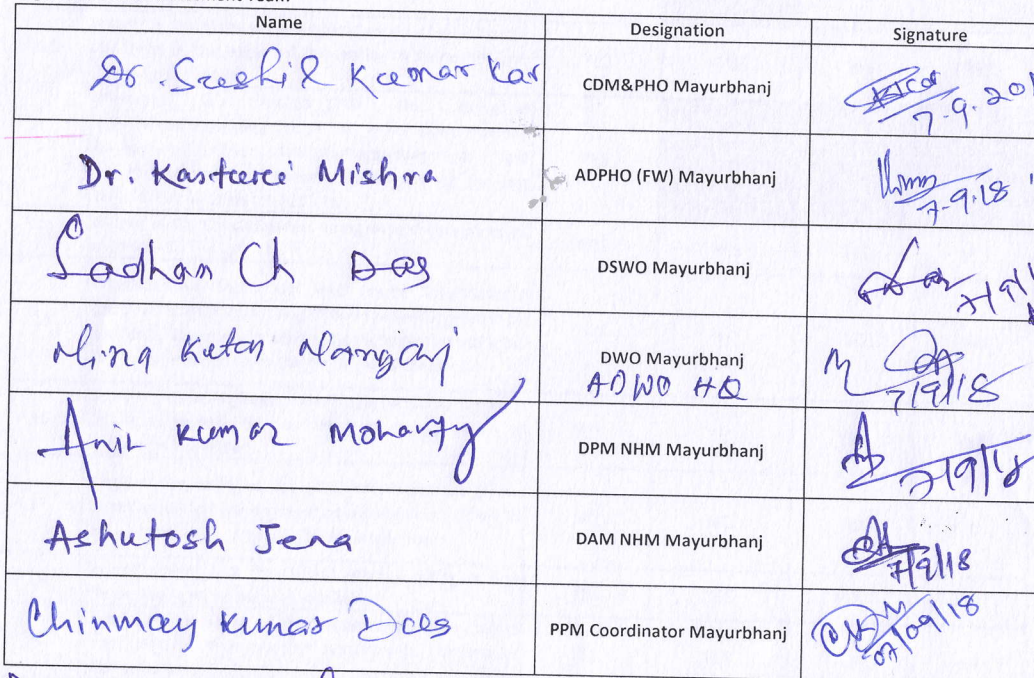 Team
Name Designation Signature
Dr. Sushil Kumar Kar CDM&PHO Mayurbhanj 7.9.201
Dr. Kasturi Mishra ADPHO (FW) Mayurbhanj 7.9.18
Sadhan Ch Das DSWO Mayurbhanj 7/9/1
Mina Ketan DWO Mayurbhanj 7/9/18
ADWO HQ
Anil Kumar Mohanty DPM NHM Mayurbhanj 7/9/18
Ashutosh Jena DAM NHM Mayurbhanj 7/9/18
Chinmay Kumar Das PPM Coordinator Mayurbhanj 07/09/18